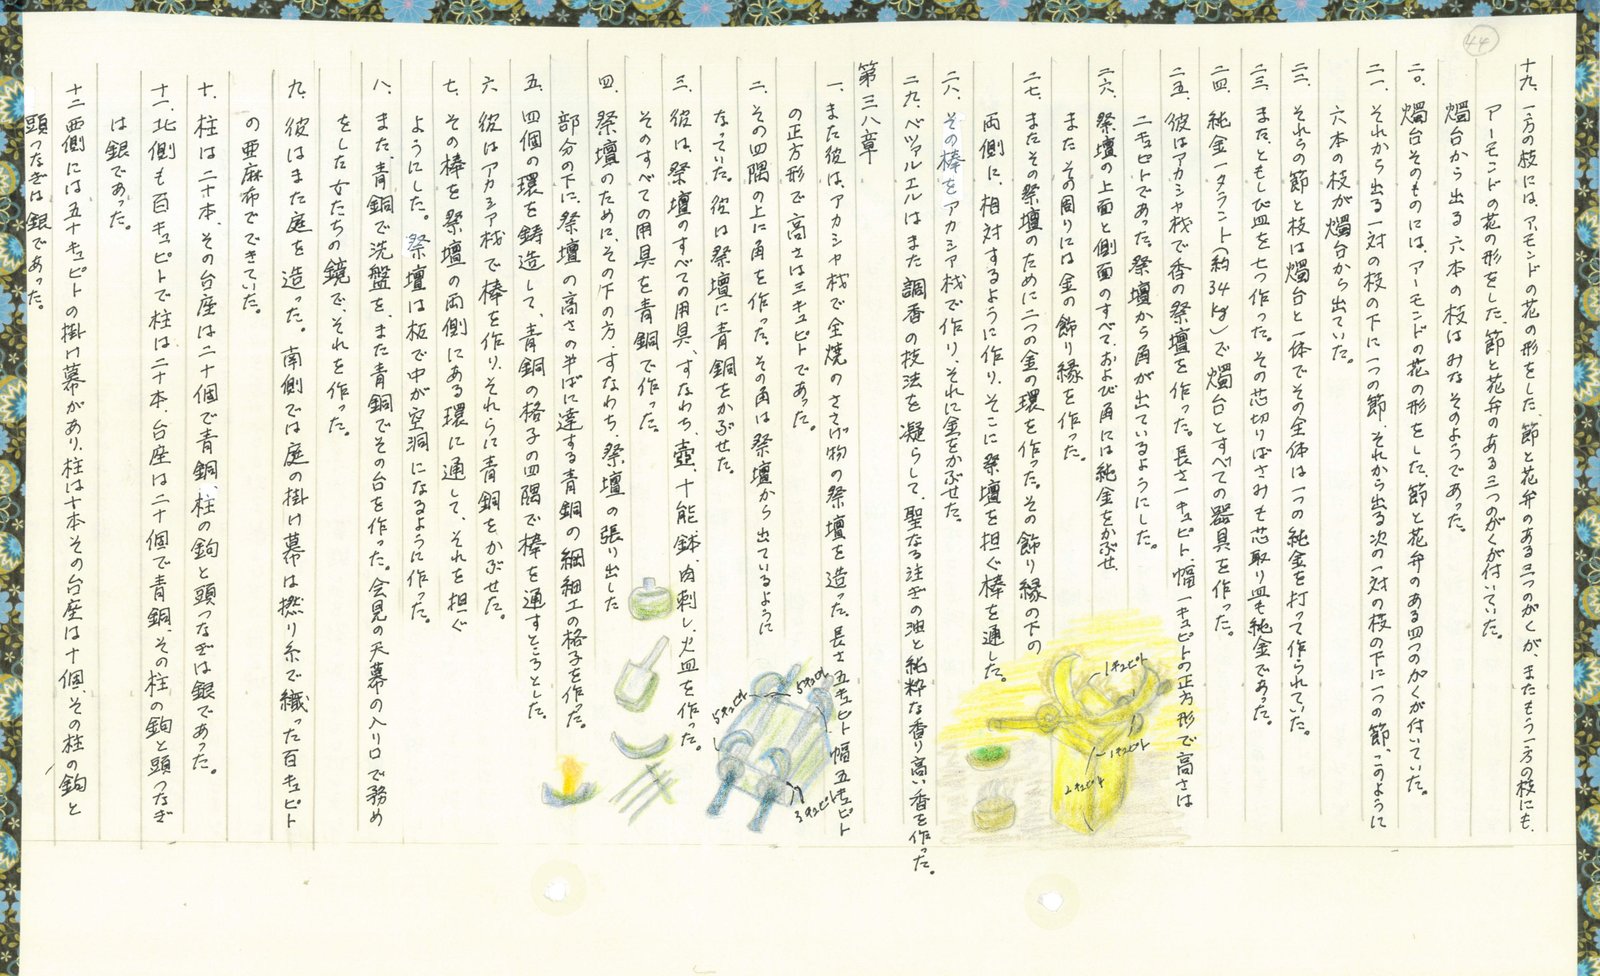 44
十九、一方の枝には、アーモンドの花の形をした、節と花弁のある三つのがくが、またもう一方の枝にも、
アーモンドの花の形をした、節と花弁のある三つのがくが付いていた。
燭台から出る六本の枝はみなそのようであった。
二〇、燭台そのものには、アーモンドの花の形をした、節と花弁のある四つのがくが付いていた。
二一、それから出る一対の枝の下に一つの節、それから出る次の一対の枝の下に一つの節、このように
六本の枝が燭台から出ていた。
二二、それらの節と枝は燭台と一体でその全体は一つの純金を打って作られていた。
二三、また、ともしび皿を七つ作った。その芯切りばさみも芯取り皿も純金であった。
二四、純金一タラント(約34kg)で燭台とすべての器具を作った。
二五、彼はアカシヤ材で香の祭壇を作った。長さ一キュビト、幅一キュビトの正方形で高さは
二キュビトであった。祭壇から角が出ているようにした。
二六、祭壇の上面と側面のすべて、および角には純金をかぶせ
また、その周りには金の飾り縁を作った。
二七、またその祭壇のために二つの金の環を作った。その飾り縁の下の
両側に、相対するように作り、そこに祭壇を担ぐ棒を通した。
二八、その棒をアカシア材で作り、それに金をかぶせた。
二九、ベツァルエルはまた調香の技法を凝らして、聖なる注ぎの油と純粋な香り高い香を作った。
第三八章
一、また彼は、アカシヤ材で全焼のささげ物の祭壇を造った。長さ五キュビト幅五キュビト
の正方形で、高さは三キュビトであった。
二、その四隅の上に角を作った。その角は祭壇から出ているように
なっていた。彼は祭壇に青銅をかぶせた。
三、彼は、祭壇のすべての用具、すなわち、壺、十能、鉢、肉刺し、火皿を作った。
そのすべての用具を青銅で作った。
四、祭壇のために、その下の方、すなわち、祭壇の張り出した
部分の下に、祭壇の高さの半ばに達する青銅の網細工の格子を作った。
五、四個の環を鋳造して、青銅の格子の四隅で棒を通すところとした。
六、彼はアカシア材で棒を作り、それらに青銅をかぶせた。
七、その棒を祭壇の両側にある環に通して、それを担ぐ
ようにした。祭壇は板で中が空洞になるように作った。
八、また、青銅で洗盤を、また青銅でその台を作った。会見の天幕の入り口で務め
をした女たちの鏡で、それを作った。
九、彼はまた庭を造った。南側では庭の掛け幕は撚り糸で織った百キュビト
の亜麻布でできていた。
十、柱は二十本、その台座は二十個で青銅、柱の鉤と頭つなぎは銀であった。
十一、北側も百キュビトで柱は二十本、台座は二十個で青銅、その柱の鉤と頭つなぎ
は銀であった。
十二、西側には、五十キュビトの掛け幕があり、柱は十本その台座は十個、その柱の鉤と
頭つなぎは銀であった。
1キュビト
1キュビト
2キュビト
5キュビト
5キュビト
3キュビト